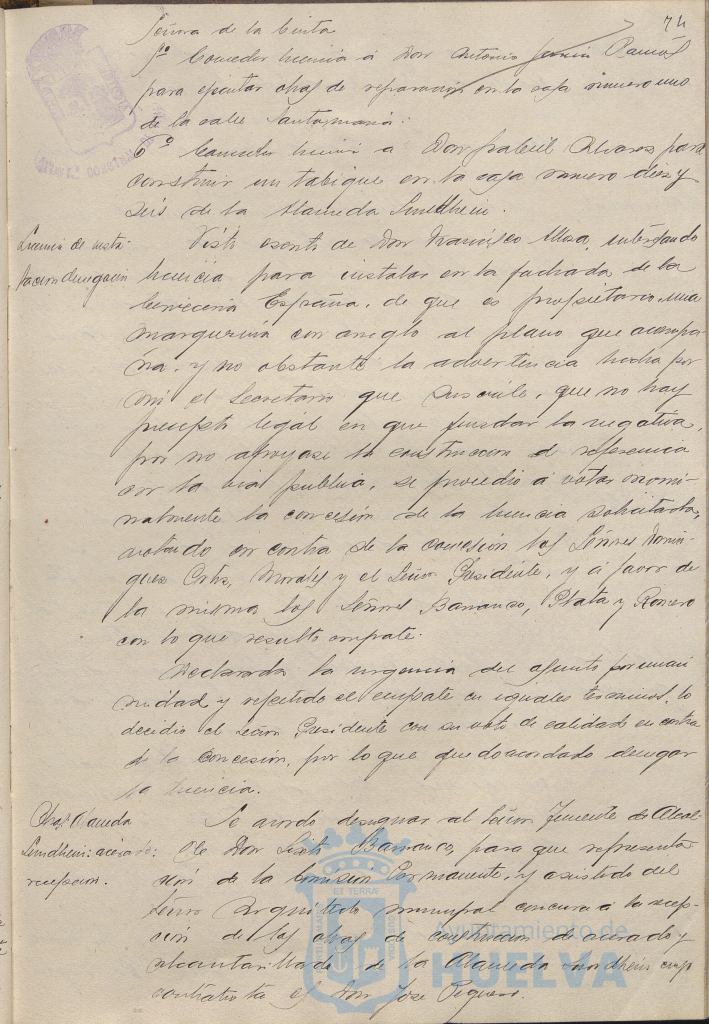 74
Señora de la Cinta
5º Conceder licencia á Don Antonio Ramós
para ejecutar obras de reparación en la casa número uno
de la calle Santa María.
6º Conceder licencia a Don Gabriel Alvarez para
construir un tabique en la casa número diez y
seis de la Alameda Sundheim.
Licencia de insta-
lacion denegación
Visto escrito de Don Francisco interesando
licencia para instalar en la fachada de la
Cerveceria España, de que es propietario, una
marquesina con areglo al plano que acompa-
ña, y no obstante la advertencia hecha por
mi el Secretario que suscribe, que no hay
precepto legal en que fundar la negativa,
por no apoyarse la construccion de referencia
en la via publica, se procedió á votar nomi-
nalmente la concesión de la licencia solicitada,
votando en contra de la concesión los Señores Domin-
guez Ortiz, Morales y el Señor Presidente, y á favor de
la misma los Señores Barranco, Plata y Romero
con lo que resultó empate.
Declarada la urgencia del asunto por unani
midad y repetido el empate en iguales terminos, lo
decidió el Señor Presidente con su voto de calidad en contra
de la concesión, por lo que quedo acordado denegar
la licencia.
Obras Alameda
Sundheim: acerado:
recepcion.
Se acordó designar al Señor Teniente de Alcal-
de Don Barranco, para que representa
ción de la Comisión Permanente, y asistido del
Señor Arquitecto municipal concurra a la recep-
ción de las obras de construccion de acerado y
alcantarillado de la Alameda Sundheim
contratista es Don Jose
ET TERRAE
Ayuntamiento de
HUELVA